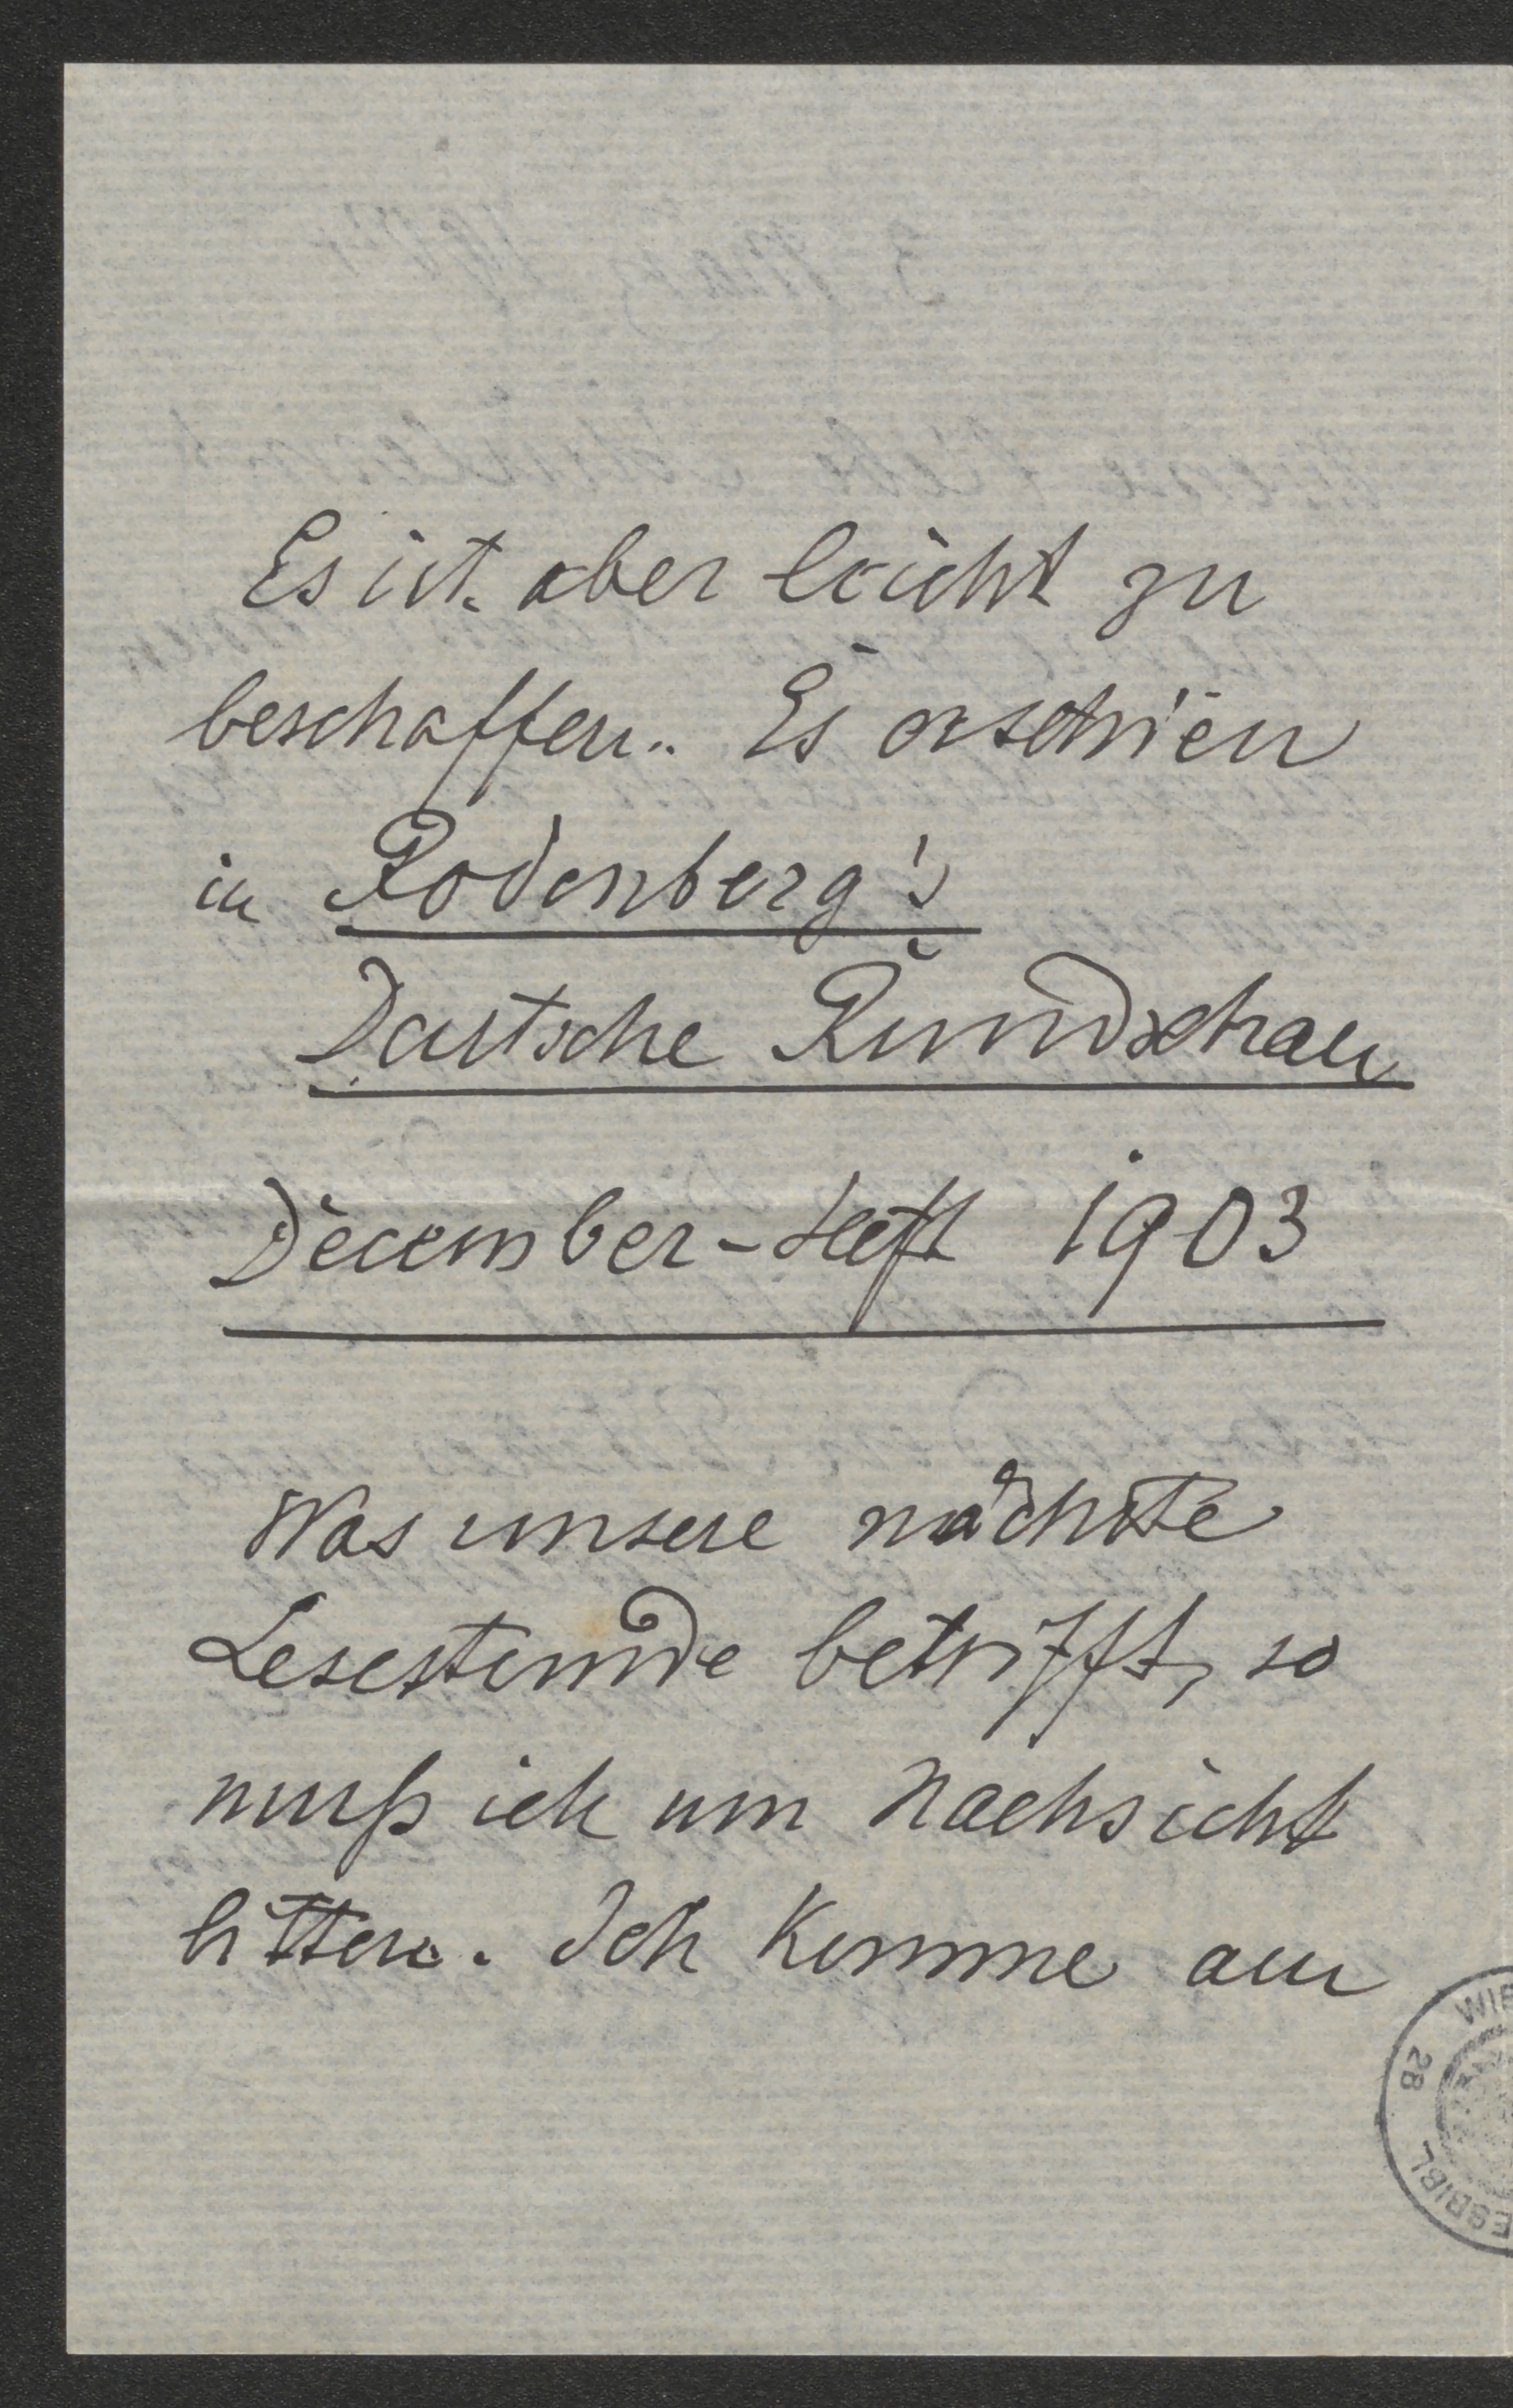 Es ist aber leicht zu
beschaffen. Es erschien
in Rodenberg's
Deutsche Rundschau
December-Heft 1903
Was unsere nächste
Lesestunde betrifft, so
muß ich um Nachsicht
bitten. Ich komme am
28